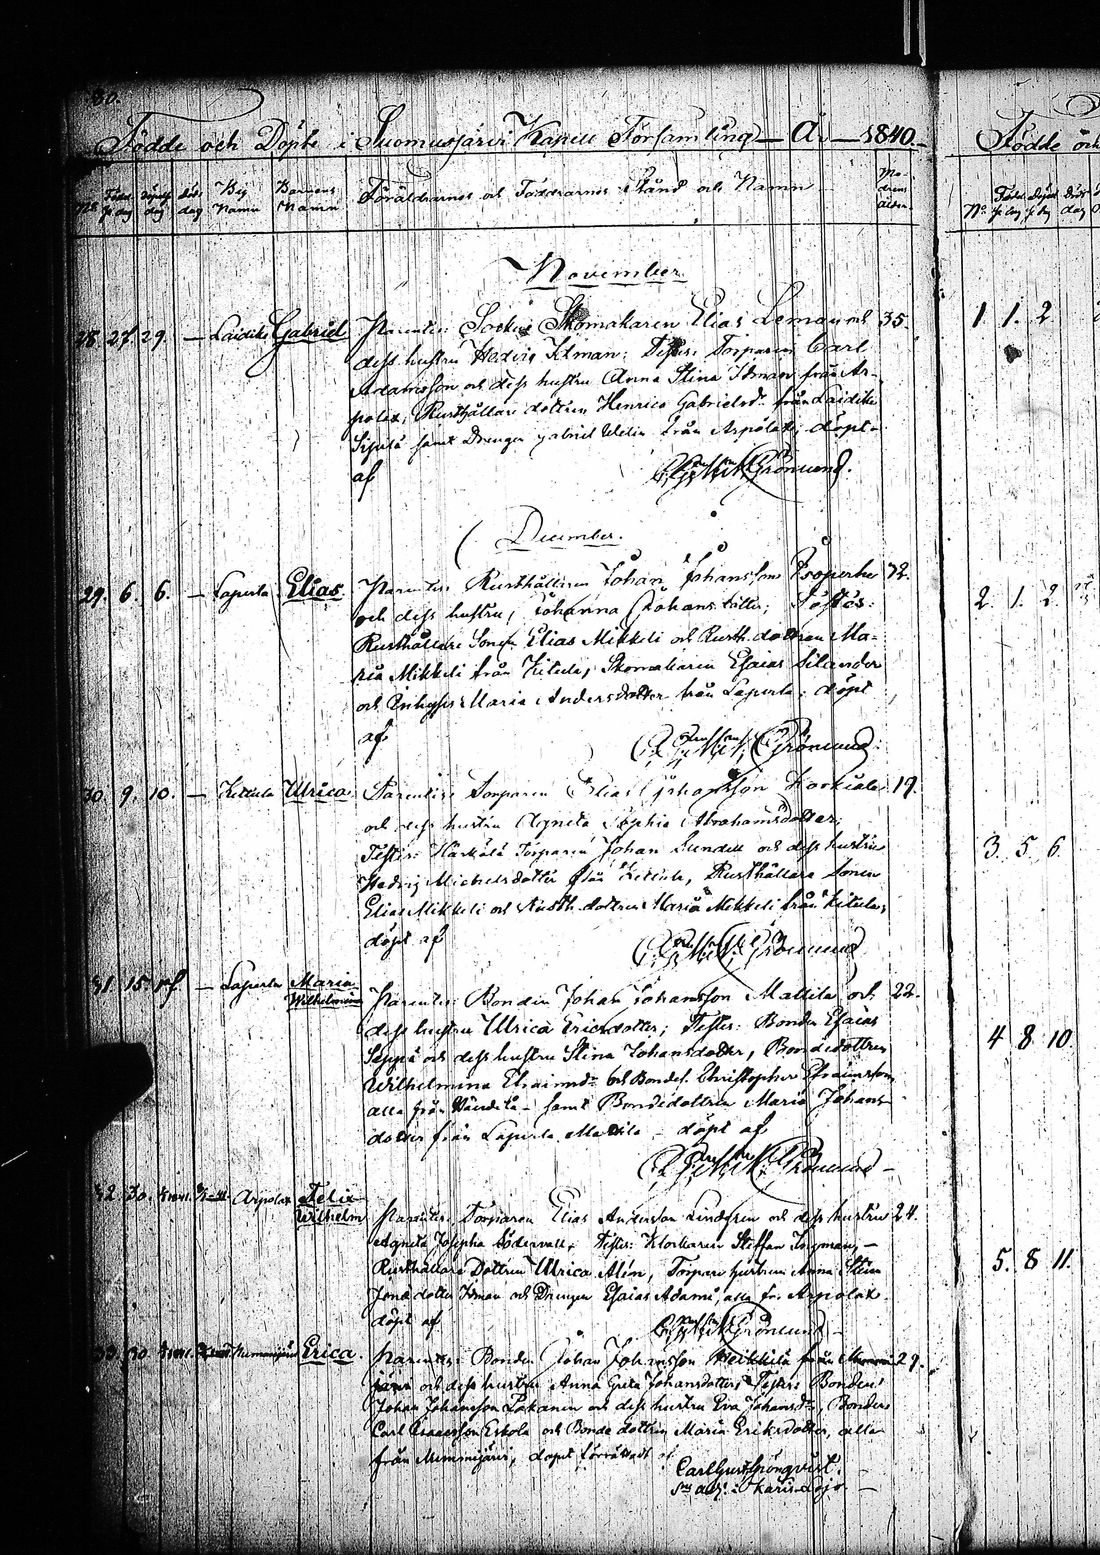 80.
Födde och Döpte i Suomusjärvi Kapell Församling År 1840.
No Födelse dag Döpelse dag Döds dag Bys Namn Barnens Namn Föräldrarnes och Faddrarnes Stånd och Namn Modrens ålder
November
28. 27. 29. — Laidike Gabriel Parentes: Socken Skomakaren Elias Leman och 35.
dess hustru Hedvig Idman: Testes: Torparen Carl
Adamsson och dess hustru Anna Stina Idman från Ar-
polax, Rusthållare dottren Henrica Gabrielsdr från Laidike
Sipilä samt Drengen Gabriel Welin från Arpolax; döpt
af Grönlund.
December.
29. 6. 6. — Laperla Elias. Parentes: Rusthållaren Johan Johansson Isoperhe 32.
och dess hustru, Johanna Johansdotter; Testes:
Rusthållare Sonen Elias Mikkeli och Rusth. dottren Ma-
ria Mikkeli från Kitula, Skomakaren Esaias Silander
och Maria Andersdotter från Laperla; döpt
af Grönlund
30. 9. 10. — Kittula Ulrica Parentes: Torparen Elias Korkiala 19.
och dess hustru Agneta Sophia Abrahamsdotter;
Testes: Härkälä Torparen Johan Sundell och dess hustru
Hedvig Michelsdotter från Kittula, Rusthållare Sonen
Elias Mikkeli och Rusth. dottren Maria Mikkeli från Kitula;
döpt af Grönlund
31. 15. — Laperla Maria Wilhelmina Parentes: Bonden Johan Johansson Mattila och 22.
dess hustru Ulrica Ericsdotter; Testes: Bonden Esaias
Seppä och dess hustru Stina Johansdotter, Bondedottren
Wilhelmina Efraimsdr och Bondes. Christopher Efraimsson
alla från samt Bondedottren Maria Johans-
dotter från Laperla Mattila — döpt af
Grönlund —
32. 30. Arpolax Felix Wilhelm Parentes: Torparen Elias Andersson Lindgren och dess hustru 24.
Agneta Josepha Södervall; Testes: Klockaren Staffan Ingman, —
Rusthållare Dottren Ulrica Alén, Torpare hustrun Anna Stina
Jonædotter Idman och Drengen Esaias Adami, alla fr. Arpolax.
döpt af
Grönlund —
33. 30. Erica. Parentes: Bonden Johan Johansson Heikkilä från 29.
järvi och dess hustru Anna Greta Johansdotter; Testes: Bonden
Johan Johansson Lakanen och dess hustru Eva Johansdr, Bonden
Carl Isaacsson Eskola och Bonde dottren Maria Eriksdotter, alla
från Nummijärvi, döpt förrättadt af
Carl Gust. Grönqvist.
Karis Lojo —
Födde och
No Födelse dag Döpel dag Döds dag
1. 1. 2.
2. 1. 2.
3. 5. 6.
4. 8. 10.
5. 8. 11.